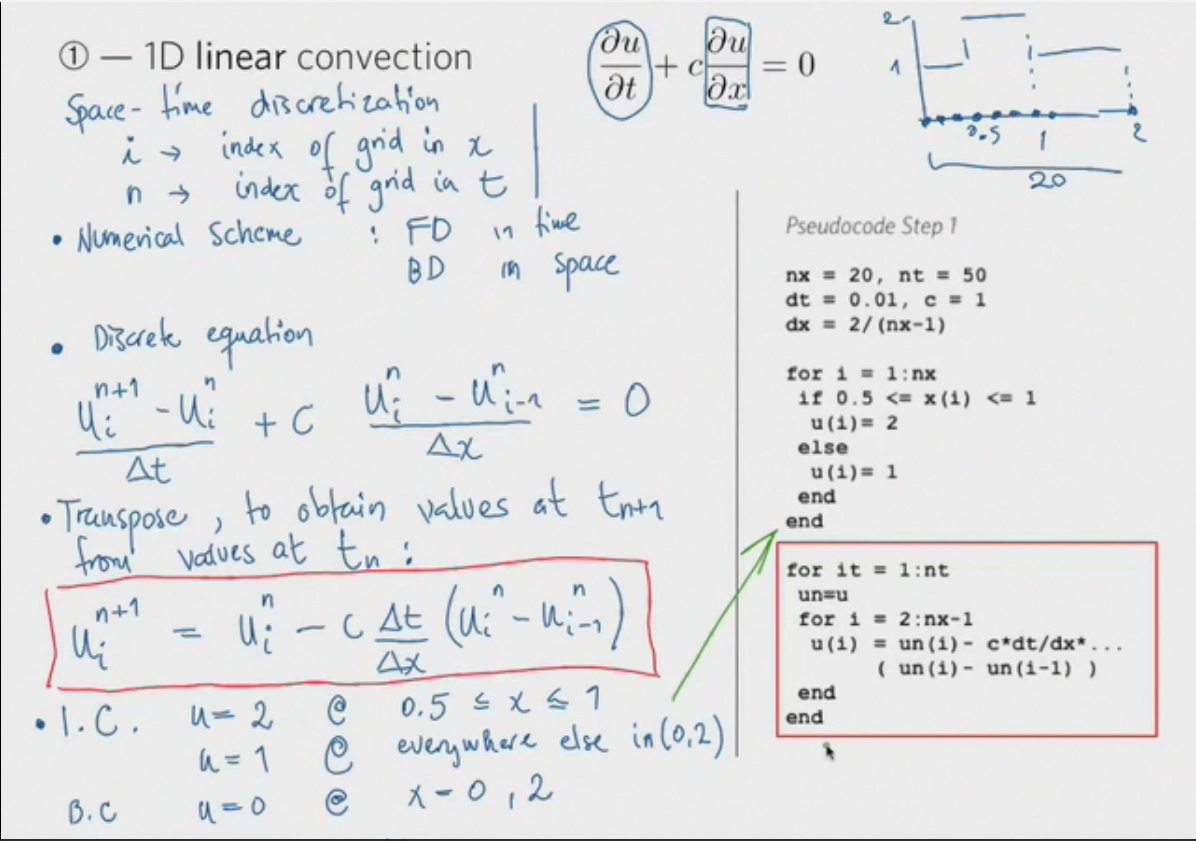 ① — 1D linear convection
∂u/∂t + c ∂u/∂x = 0
2
1
0.5 1 2
20
Space-time discretization
i → index of grid in x
n → index of grid in t
• Numerical Scheme : FD in time
BD in space
• Discrete equation
(u_i^{n+1} - u_i^n)/Δt + c (u_i^n - u_{i-1}^n)/Δx = 0
• Transpose, to obtain values at t_{n+1}
from values at t_n :
u_i^{n+1} = u_i^n - c Δt/Δx (u_i^n - u_{i-1}^n)
• I.C. u = 2 @ 0.5 ≤ x ≤ 1
u = 1 @ everywhere else in (0,2)
B.C u = 0 @ x = 0, 2
Pseudocode Step 1
nx = 20, nt = 50
dt = 0.01, c = 1
dx = 2/(nx-1)
for i = 1:nx
if 0.5 <= x(i) <= 1
u(i)= 2
else
u(i)= 1
end
end
for it = 1:nt
un=u
for i = 2:nx-1
u(i) = un(i)- c*dt/dx*...
( un(i)- un(i-1) )
end
end